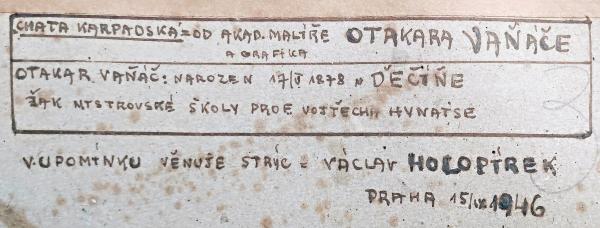 CHATA KARPADSKÁ = OD AKAD. MALÍŘE OTAKARA VAŇÁČE
A GRAFIKA
OTAKAR VAŇÁČ: NAROZEN 17/I 1878 v DĚČÍŇE
ŽÁK MISTROVSKÉ ŠKOLY PROF VOJTĚCHA HYNAISE
V.UPOMÍNKU VĚNUJE STRÝC = VÁCLAV HOLOPÍREK
PRAHA 15/IX 1946